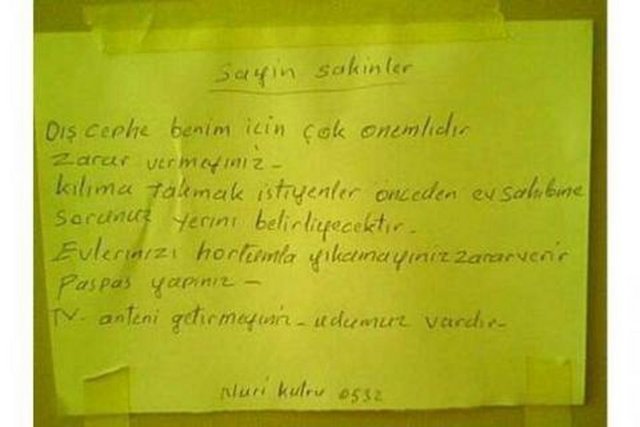 Sayin sakinler
Dış cephe benim için çok onemlidir
Zarar vermeyiniz -
kılıma takmak istiyenler önceden ev sahibine
sorunuz yerini belirliyecektir.
Evlerinizi hortumla yıkamayınız zarar verir
Paspas yapınız -
TV. anteni getirmeyiniz - udumuz vardır -
Nuri 0532